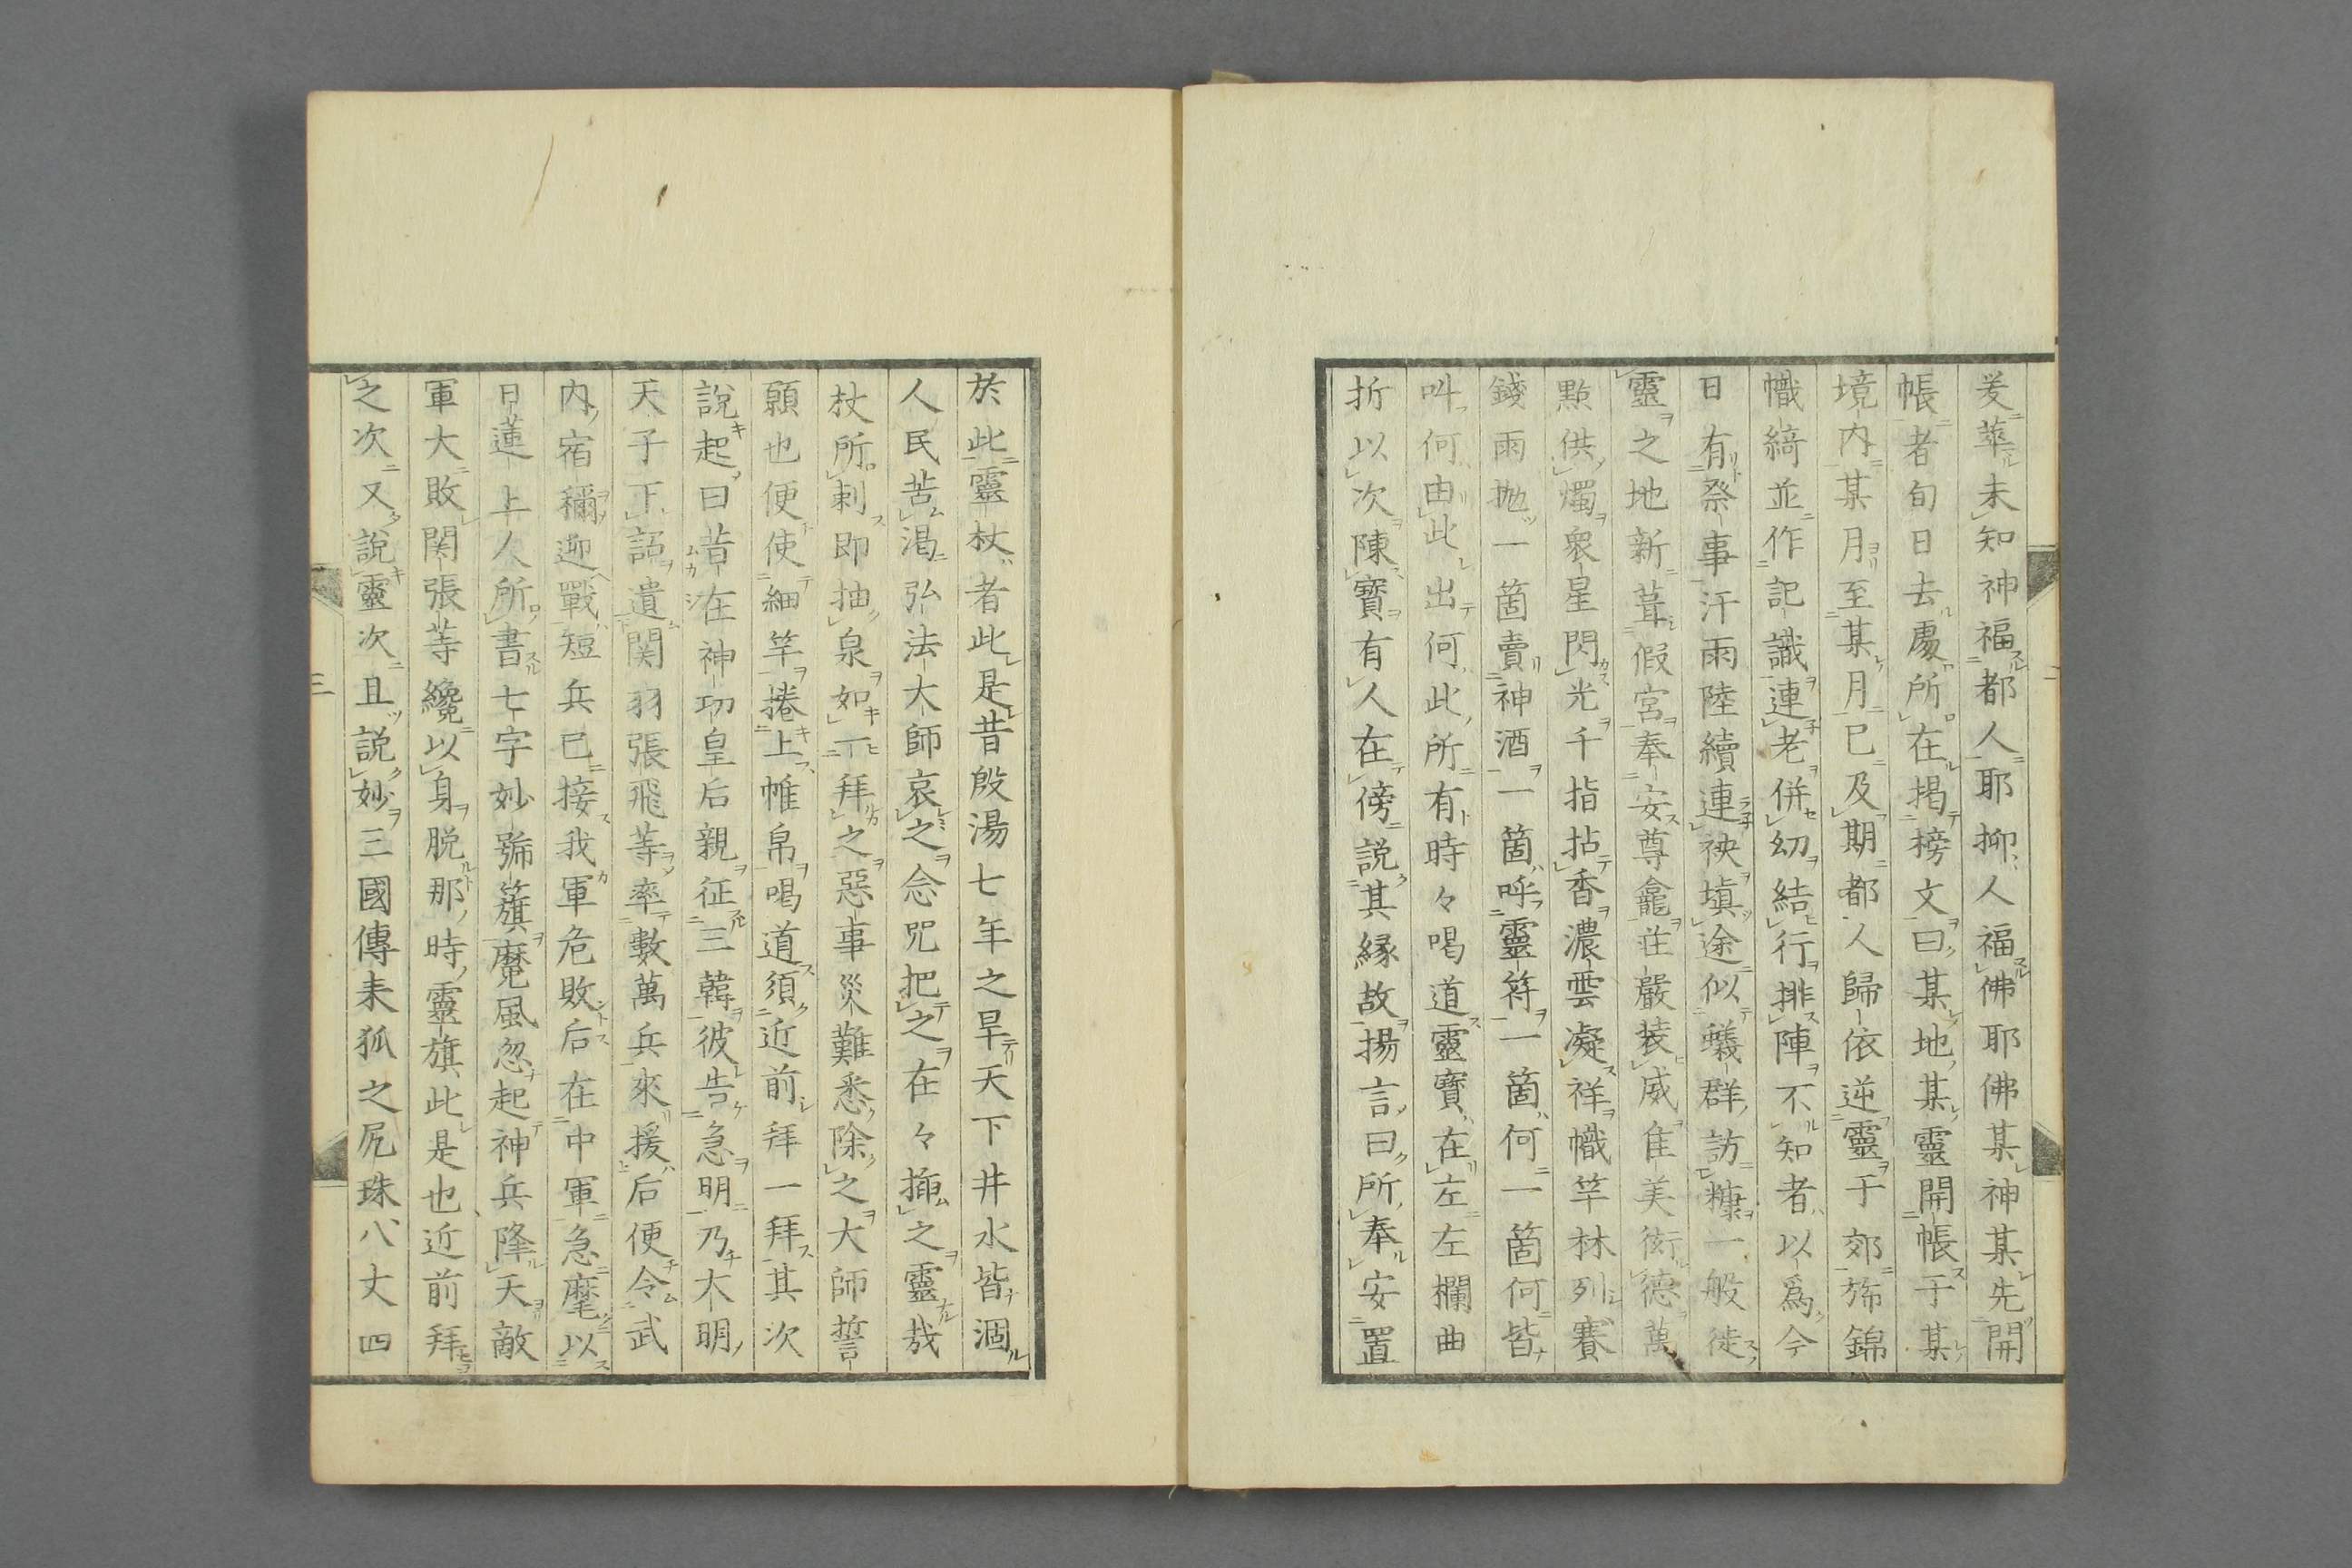 爰華未知神福都人耶抑人福佛耶佛某神某先開
帳者旬日去處所在揭榜文曰某地某靈開帳于某
境内某月至某月已及期都人歸依逆靈于郊旆錦
幟綺並作記識連老併幼結行排陣不知者以爲今
日有祭事汗雨陸續連袂塡途似蟻群訪糠一般徙
靈之地新葺假宮奉安尊龕莊嚴裝威隹美衒德萬
點供燭衆星閃光千指拈香濃雲凝祥幟竿林列賽
錢雨拋一箇賣神酒一箇呼靈符一箇何一箇何皆
叫何由此出何此所有時々喝道靈寶在左左欄曲
折以次陳寶有人在傍說其縁故揚言曰所奉安置
於此靈杖者此是昔殷湯七年之旱天下井水皆涸
人民苦渴弘法大師哀之念呪把之在々揷之靈哉
杖所刺即抽泉如一拜之惡事災難悉除之大師誓
願也便使細竿捲上帷帛喝道須近前拜一拜其次
說起曰昔在神功皇后親征三韓彼告急明乃大明
天子下詔遣関羽張飛等率數萬兵來援后便令武
内宿禰迎戰短兵已接我軍危敗后在中軍急麾以
日蓮上人所書七字妙號簱魔風忽起神兵降天敵
軍大敗関張等纔以身脱那時靈旗此是也近前拜
之次又說靈次且説妙三國傳来狐之尻珠八丈四
二
三